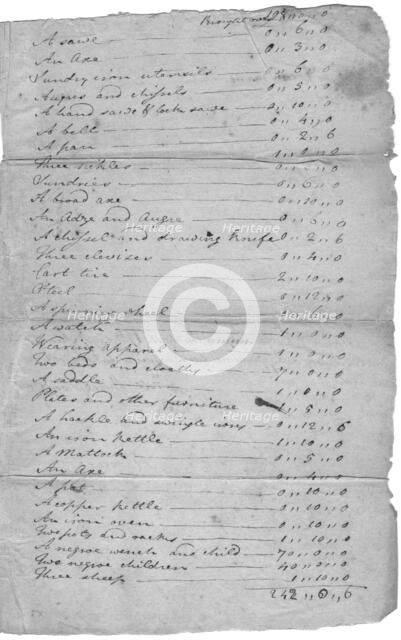 Brought over
A sawe 0 " 6 " 0
An Axe 0 " 3 " 0
Sundry iron utensils 0 " 6 " 0
Augers and chissels 0 " 5 " 0
A hand sawe & lock sawe 0 " 10 " 0
A bell 0 " 4 " 0
A pan 0 " 2 " 6
Three sickles
Sundries 0 " 6 " 0
A broad axe 0 " 10 " 0
An Adge and Augre 0 " 6 " 0
A chissel and drawing knife 0 " 2 " 6
Three clevises 0 " 4 " 0
Cart tire 2 " 10 " 0
Steel 0 " 12 " 0
A spinning wheel
A watch 1 " 0 " 0
Wearing apparel 1 " 0 " 0
Two beds and cloaths 7 " 0 " 0
A saddle 1 " 0 " 0
Plates and other furniture 5 " 0
A hackle and swingle irons 0 " 12 " 6
An iron kettle 1 " 10 " 0
A Mattock 0 " 5 " 0
An Axe 0 " 4 " 0
A pot 0 " 10 " 0
A copper kettle 0 " 10 " 0
An iron oven 0 " 10 " 0
Two pots and racks 1 " 10 " 0
A negroe wench and child 70 " 0 " 0
Two negroe children 40 " 0 " 0
Three sheep 1 " 10 " 0
242 " 0 " 6
Heritage Images
Heritage Images
Heritage Images
Heritage Images
Heritage Images
Heritage Images